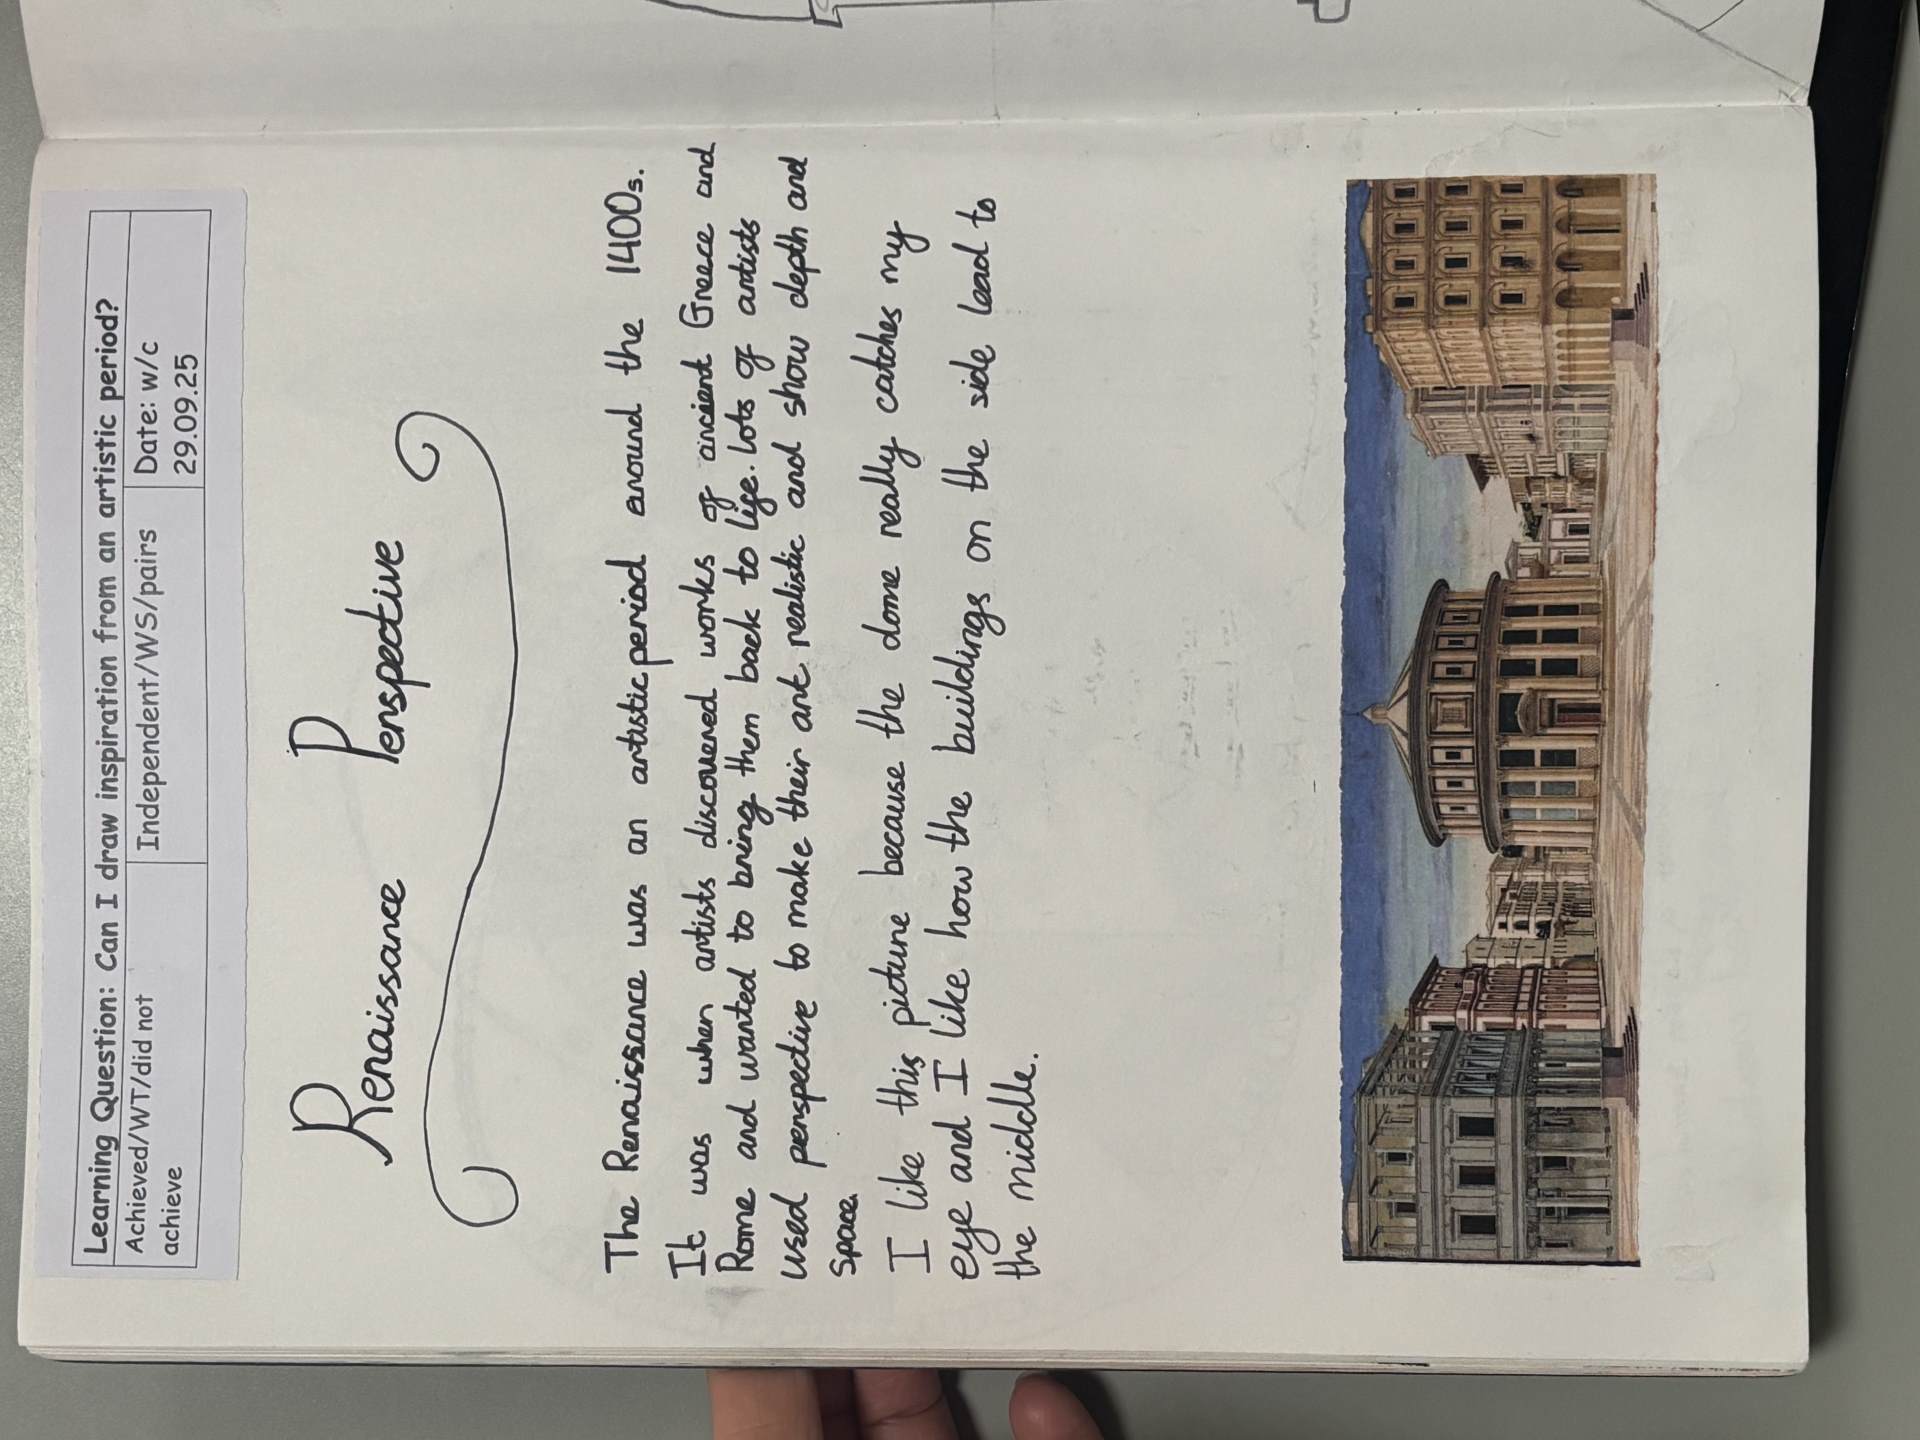 Learning Question: Can I draw inspiration from an artistic period?
Achieved/WT/did not achieve
Independent/WS/pairs
Date: w/c
29.09.25
Renaissance Perspective
The Renaissance was an artistic period around the 1400s.
It was when artists discovered works of ancient Greece and
Rome and wanted to bring them back to life. Lots of artists
used perspective to make their art realistic and show depth and
space.
I like this picture because the dome really catches my
eye and I like how the buildings on the side lead to
the middle.